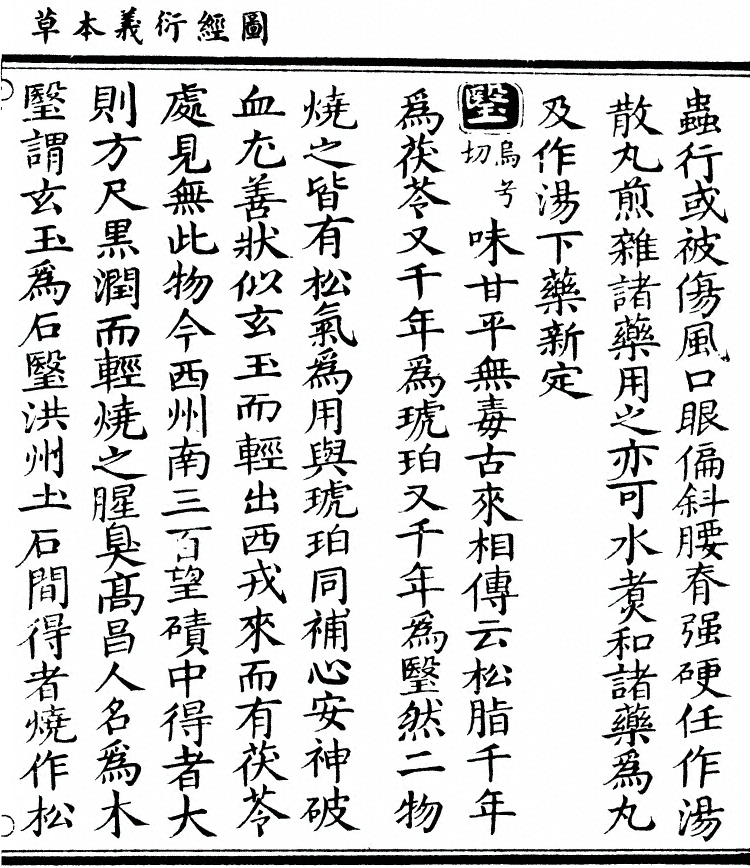 圖經衍義本草
蟲行或被傷風口眼偏斜腰脊强硬任作湯
散丸煎雜諸藥用之亦可水煑和諸藥爲丸
及作湯下藥新定
瑿烏兮切味甘平無毒古來相傳云松脂千年
爲茯苓又千年爲琥珀又千年爲瑿然二物
燒之皆有松氣爲用與琥珀同補心安神破
血尤善狀似玄玉而輕出西戎來而有茯苓
處見無此物今西州南三百望磧中得者大
則方尺黒潤而輕燒之腥臭髙昌人名爲木
瑿謂玄玉爲石瑿洪州土石間得者燒作松